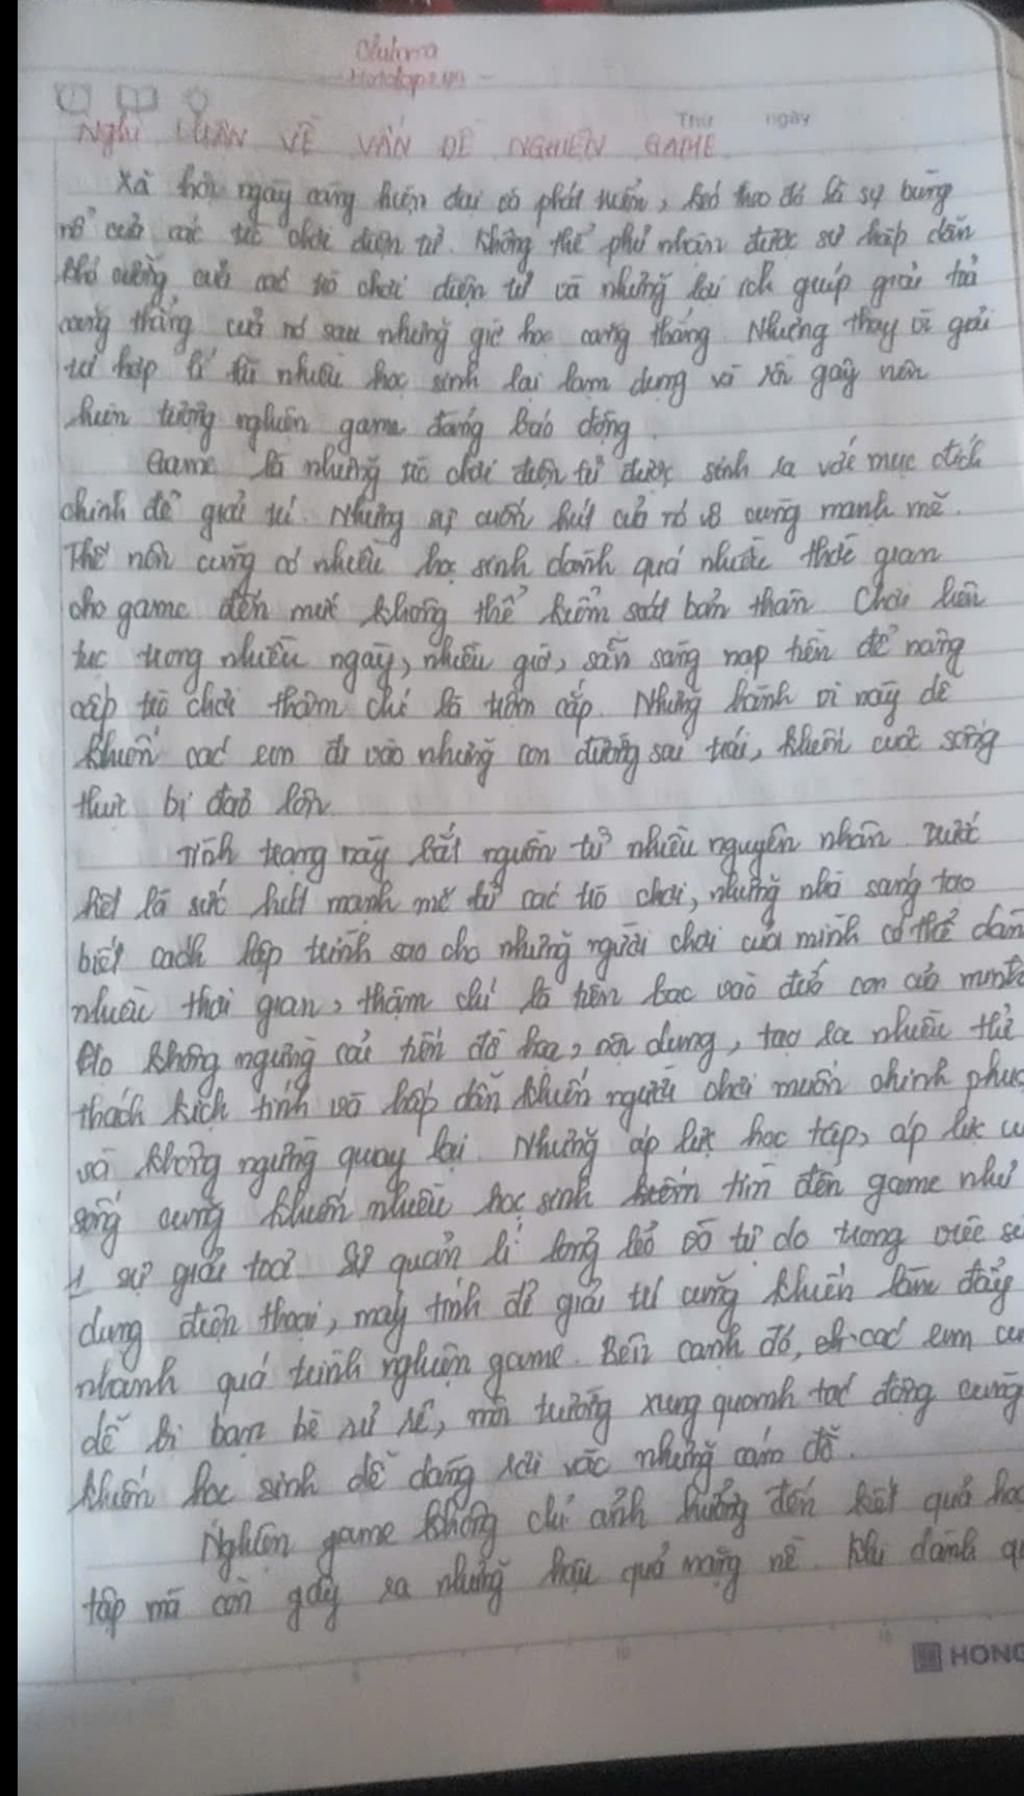 Thứ ngày
NGHỊ LUẬN VỀ VẤN ĐỀ NGHIỆN GAME
Xã hội ngày càng hiện đại và phát triển, kéo theo đó là sự bùng
nổ của các trò chơi điện tử. Không thể phủ nhận được sự hấp dẫn
khó cưỡng của các trò chơi điện tử và những lợi ích giúp giải toả
căng thẳng của nó sau những giờ học căng thẳng. Nhưng thay vì giải
trí hợp lí thì nhiều học sinh lại lạm dụng và rồi gây nên
hiện tượng nghiện game đáng báo động.
Game là những trò chơi điện tử được sinh ra với mục đích
chính để giải trí. Nhưng sự cuốn hút của nó vô cùng mạnh mẽ.
Thế nên cũng có nhiều học sinh dành quá nhiều thời gian
cho game đến mức không thể kiểm soát bản thân. Chơi liên
tục trong nhiều ngày, nhiều giờ, sẵn sàng nạp tiền để nâng
cấp trò chơi thậm chí là trộm cắp. Những hành vi này dễ
khiến các em đi vào những con đường sai trái, khiến cuộc sống
thực bị đảo lộn.
Tình trạng này bắt nguồn từ nhiều nguyên nhân. Trước
hết là sức hút mạnh mẽ từ các trò chơi, những nhà sáng tạo
biết cách lập trình sao cho những người chơi của mình có thể dàn
nhiều thời gian, thậm chí là tiền bạc vào đứa con của mình.
Họ không ngừng cải tiến đồ hoạ, nội dung, tạo ra nhiều thử
thách kịch tính và hấp dẫn khiến người chơi muốn chinh phục
và không ngừng quay lại. Những áp lực học tập, áp lực cu
sống cũng khiến nhiều học sinh tìm đến game như
1 sự giải toả. Sự quản lí lỏng lẻo và tự do trong việc sử
dụng điện thoại, máy tính để giải trí cũng khiến làm đẩy
nhanh quá trình nghiện game. Bên cạnh đó, các em cũ
dễ bị bạn bè rủ rê, môi trường xung quanh tác động cũng
khiến học sinh dễ dàng rơi vào những cám dỗ.
Nghiện game không chỉ ảnh hưởng đến kết quả học
tập mà còn gây ra những hậu quả nặng nề. Khi dành qu
HONG